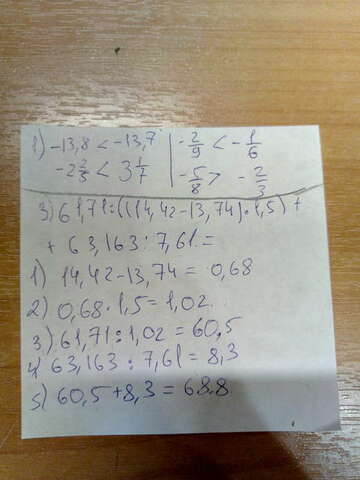 1) -13,8 < -13,7 | -2/9 < -1/6
-2 2/3 < 3 1/7 | -5/8 > -2/3
3) 61,71:((14,42-13,74)·1,5) +
+ 63,163:7,61.=
1) 14,42-13,74 = 0,68
2) 0,68·1,5=1,02.
3.) 61,71:1,02 = 60,5
4) 63,163:7,61=8,3
5) 60,5+8,3 = 68.8